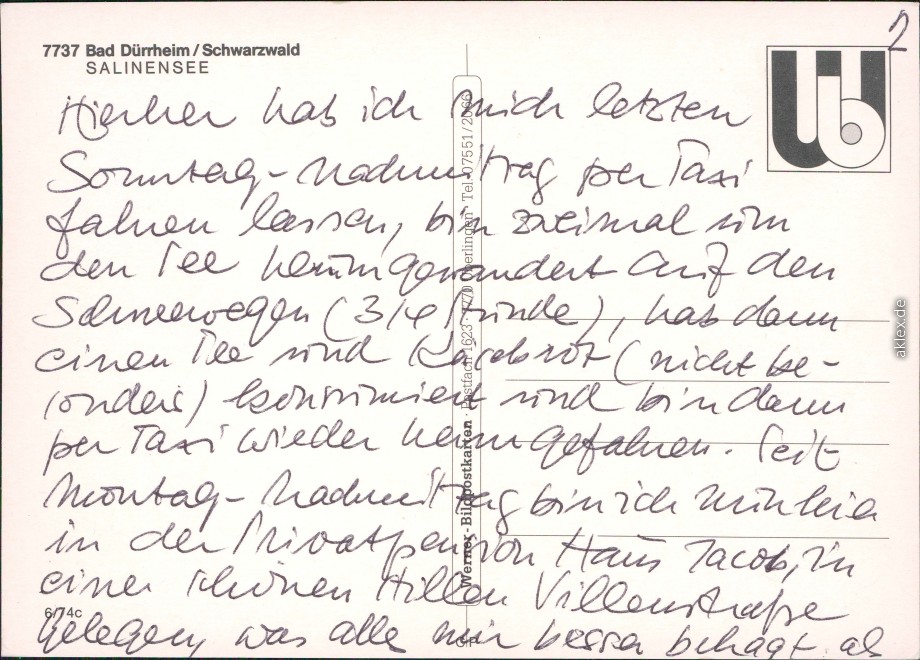 2
7737 Bad Dürrheim / Schwarzwald
SALINENSEE
Hierher hab ich mich letzten
Sonntag-Nachmittag per Taxi
fahren lassen, bin zweimal um
den See herumgewandert auf den
Schneewegen (3/4 Stunde), hab dann
einen Tee und Käsebrot (nicht be-
sonders) konsumiert und bin dann
per Taxi wieder heimgefahren. Seit
Montag-Nachmittag bin ich nun hier
in der Privatpension Haus Jacob, in
einer schönen stillen Villenstraße
gelegen, was alles mir besser behagt als
Werner-Bildpostkarten · Postfach 1623 · 7770 Überlingen · Tel. 07551/2066
6/74c
aklex.de